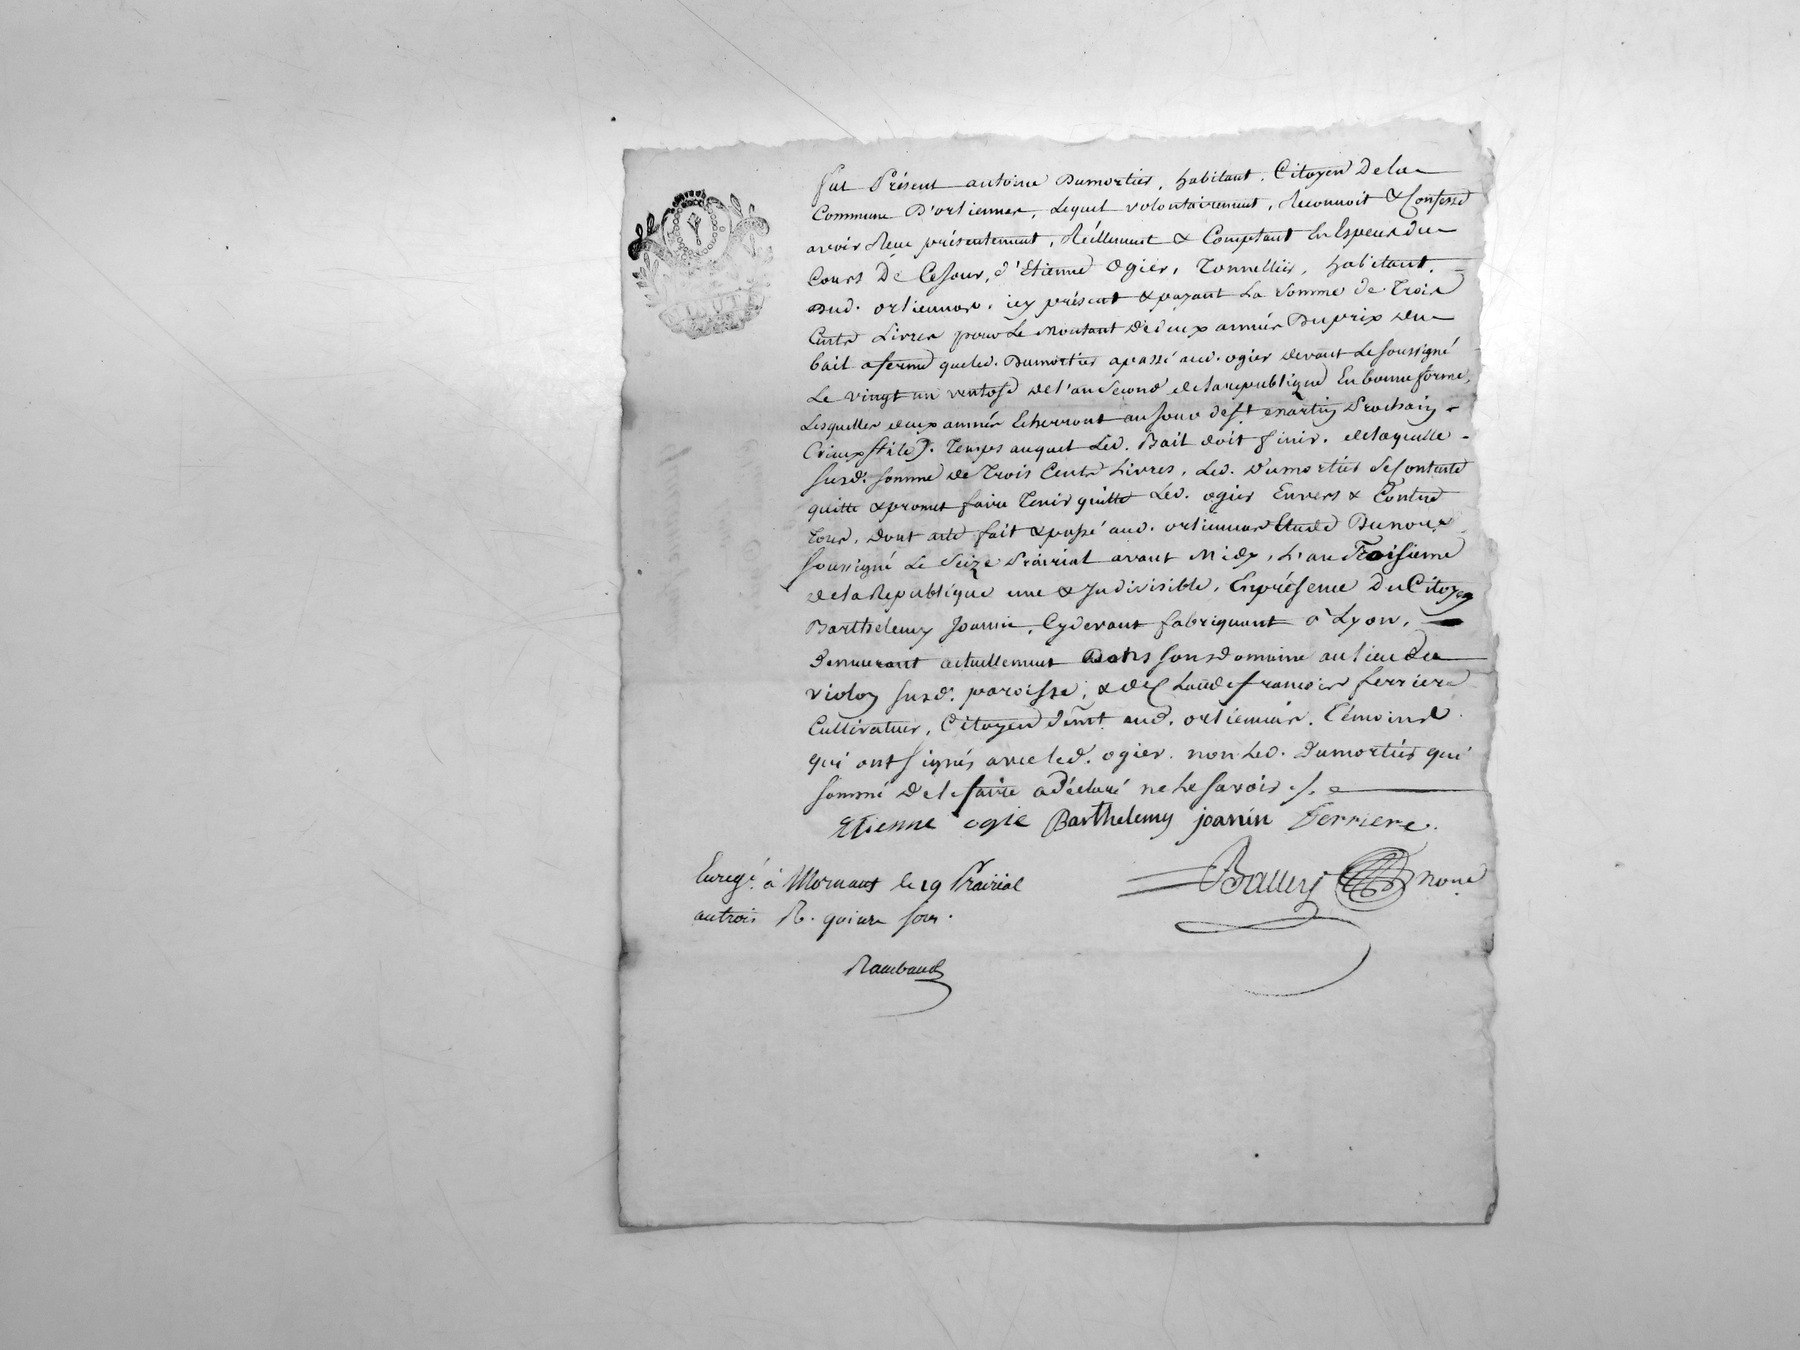 fut Présent antoine Dumortier, habitant, Citoyen De la
Commune D'orlienner, Lequel volontairement, Reconnoit & Confesse
avoir Reçu présentement, Réellement & Comptant En Espece du
Cours De Ce Jour, d'Etienne Ogier, Tonnellier, habitant
Dud. orlienner, icy présent & payant La Somme de Trois
Cents Livres pour Le Montant De deux années Du prix Du
bail a ferme que led. Dumortier a passé aud. ogier devant Le Soussigné
Le vingt un ventose de l'an Second de la republique En bonne forme,
Lesquelles deux années Echerront au Jour de St Martin Prochain
(vieux stile). Temps auquel Led. Bail doit finir. de laquelle
susd. Somme de Trois Cents Livres, Led. Dumortier Se Contente
quitte & promet faire Tenir quitte Led. ogier Envers & Contre
Tous, dont acte fait & passé aud. orlienner Etude De nous
Soussigné Le Seize Prairial avant Midy, L'an Troisieme
de la Republique une & Indivisible, En présence Du Citoyen
Barthelemy Joanin, Cy devant fabriquant à Lyon,
Demeurant actuellement Dans Son Domaine au lieu De
violon susd. paroisse, & de Claude françois ferriere
Cultivateur, Citoyen Demt. aud. orlienner, Témoins
qui ont Signés avec led. ogier. non Led. Dumortier qui
Sommé de le faire a Déclaré ne le Savoir
Etienne ogié Barthelemy joanin ferriere.
Enregé. à Mornant le 19 Prairial
an trois R. quinze Sous.
nore
Rambaud